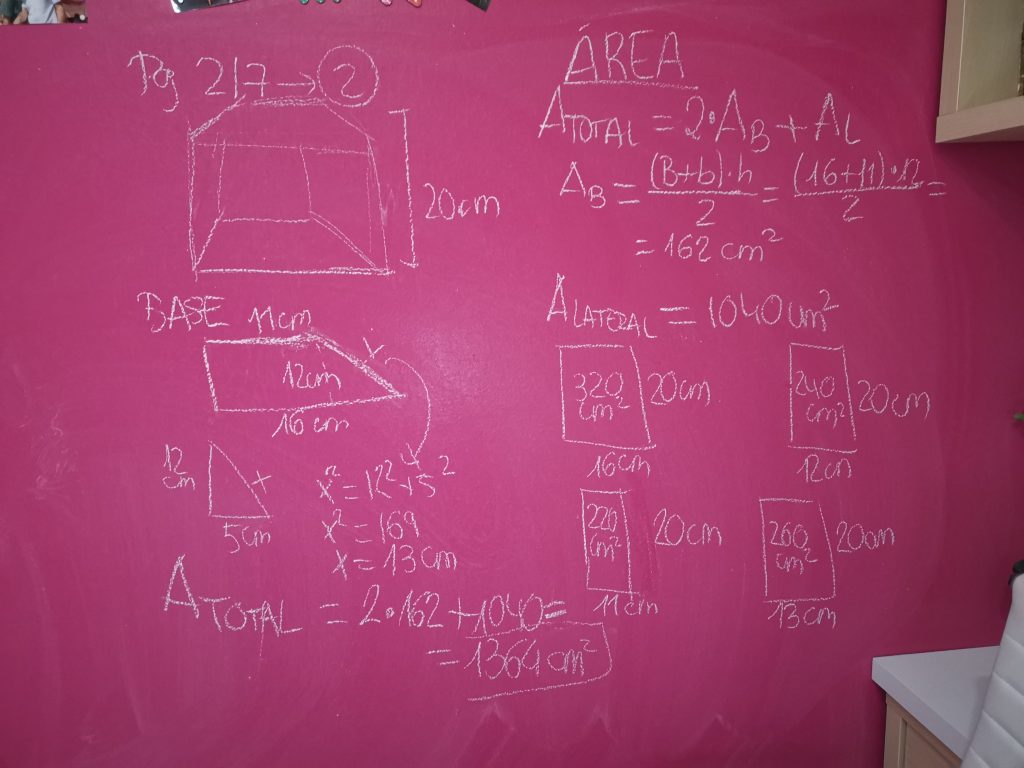 Pág 217 → 2
20cm
BASE
11cm
x
12cm
16cm
12 cm
x
5cm
x² = 12² + 5²
x² = 169
x = 13cm
ATOTAL = 2·162 + 1040 =
= 1364cm²
ÁREA
ATOTAL = 2·AB + AL
AB = (B+b)·h / 2 = (16+11)·12 / 2 =
= 162 cm²
ALATERAL = 1040cm²
320 cm²
20cm
16cm
240 cm²
20cm
12cm
220 cm²
20cm
11cm
260 cm²
20cm
13cm